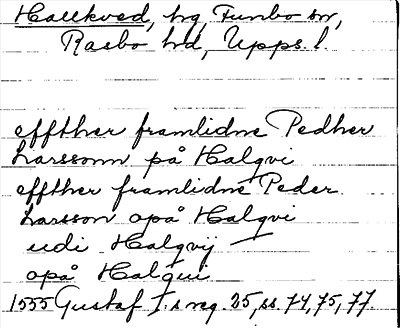 Hallkved, hg, Funbo sn,
Rasbo hd, Upps. l.
effther framlidne Pedher
Larssonn på Halqvi
effther framlidne Peder
Larsson opå Halqvi
udi Halqvij —
opå Halqui
1555 Gustaf I:s reg. 25, ss. 74, 75, 77.